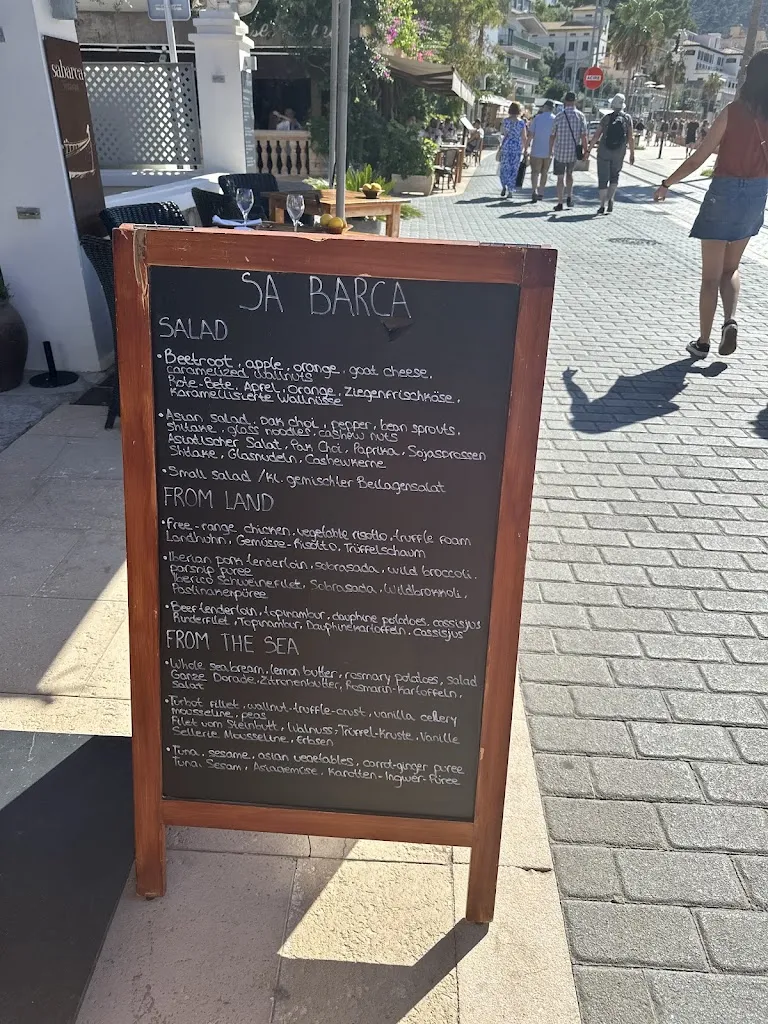 sabarca
SA BARCA
SALAD
• Beetroot, apple, orange, goat cheese,
caramelized wallnuts
Rote-Bete, Apfel, Orange, Ziegenfrischkäse,
Karamellisierte Wallnüsse
• Asian salad, Pak choi, pepper, bean sprouts,
shitake, glass noodles, cashew nuts
Asiatischer Salat, Pak Choi, Paprika, Sojasprossen
Shitake, Glasnudeln, Cashewkerne
• Small salad / kl. gemischter Beilagensalat
FROM LAND
• Free-range chicken, vegetable risotto, truffle foam
Landhuhn, Gemüsse-Risotto, Trüffelschaum
• Iberian pork tenderloin, sobrasada, wild broccoli,
parsnip puree
Iberico schweinefilet, Sobrasada, Wildbrokkoli,
Pastinakenpüree
• Beef tenderloin, topinambur, dauphine potatoes, cassisjus
Rinderfilet, Topinambur, Dauphinekartoffeln, Cassisjus
FROM THE SEA
• Whole seabream, lemon butter, rosmary potatoes, salad
Ganze Dorade, Zitronenbutter, Rosmarin-Kartoffeln,
Salat
• Turbot fillet, wallnut-truffle-crust, vanilla cellery
mousseline, peas
Filet vom Steinbutt, Walnuss-Trüffel-Kruste, Vanille
Sellerie Mousseline, Erbsen
• Tuna, sesame, asian vegetables, carrot-ginger puree
Tuna, Sesam, Asiagemüse, Karotten-Ingwer-Püree